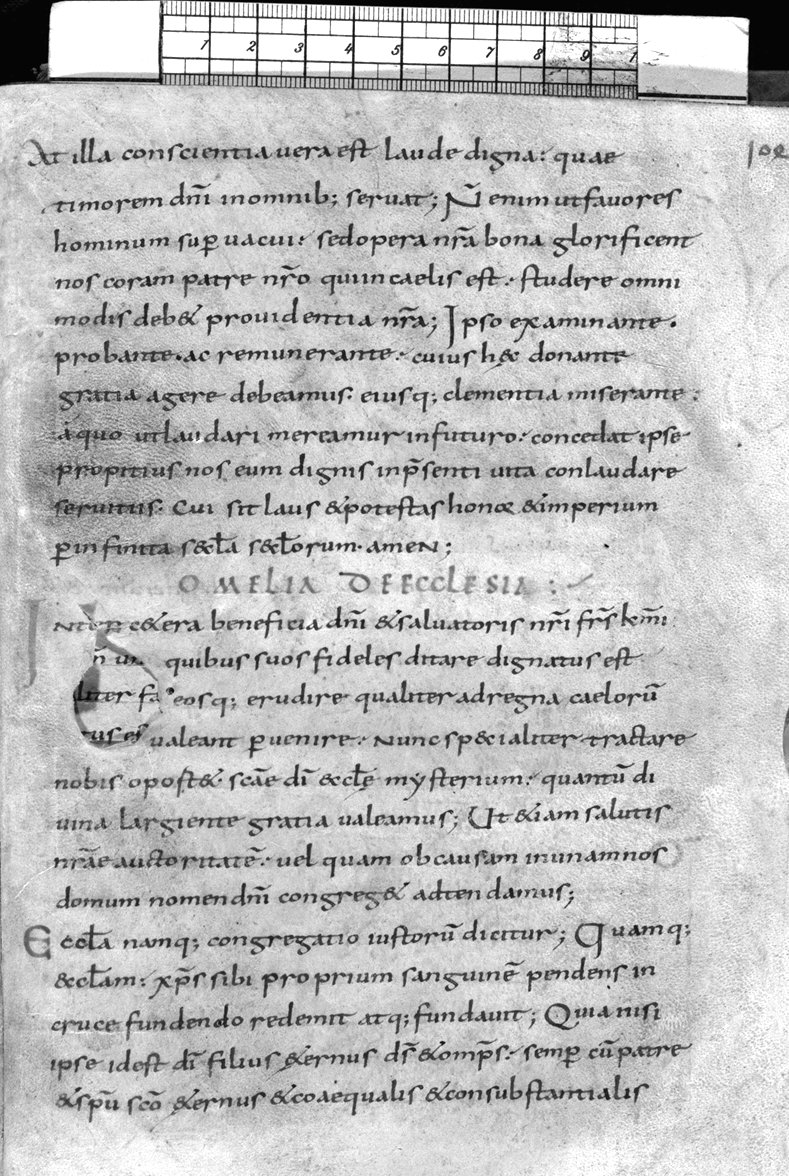 1 2 3 4 5 6 7 8 9 1
At illa conscientia uera est laude digna: quae
timorem dñi inomnib; seruat; Ñ enim utfauores
hominum sup̄uacui: sedopera nr̄a bona glorificent
nos coram patre nr̄o quiincaelis est. studere omni
modis deb& prouidentia nr̄a; Ipso examinante.
probante. ac remunerante. cuius h&c donante
gratia agere debeamus. eiusq; clementia miserante:
aquo utlaudari mereamur infuturo. concedat ipse
propitius nos eum dignis inp̄senti uita conlaudare
seruitiis. Cui sit laus &potestas honor &imperium
p̄infinita s&c̄la s&c̄lorum. amen;
OMELIA DEECCLESIA:
INTER c&era beneficia dñi &saluatoris nr̄i fr̄s km̄i
quibus suos fideles ditare dignatus est
eosq; erudire qualiter adregna caelorū
ualeant p̄uenire. Nunc sp&ialiter tractare
nobis oport& sc̄ae dī &ccl̄ę mysterium. quantū di
uina largiente gratia ualeamus; Ut &iam salutis
nr̄ae auctoritatē. uel quam obcausam inunamnos
domum nomen dñi congreg& adtendamus;
Eccl̄a namq; congregatio iustorū dicitur; Quamq;
&ccl̄am: xp̄s sibi proprium sanguinē pendens in
cruce fundendo redemit atq; fundauit; Quia nisi
ipse idest dī filius &ernus ds̄ &omps̄. semp̄ cū patre
&spū scō &ernus &coaequalis &consubstantialis